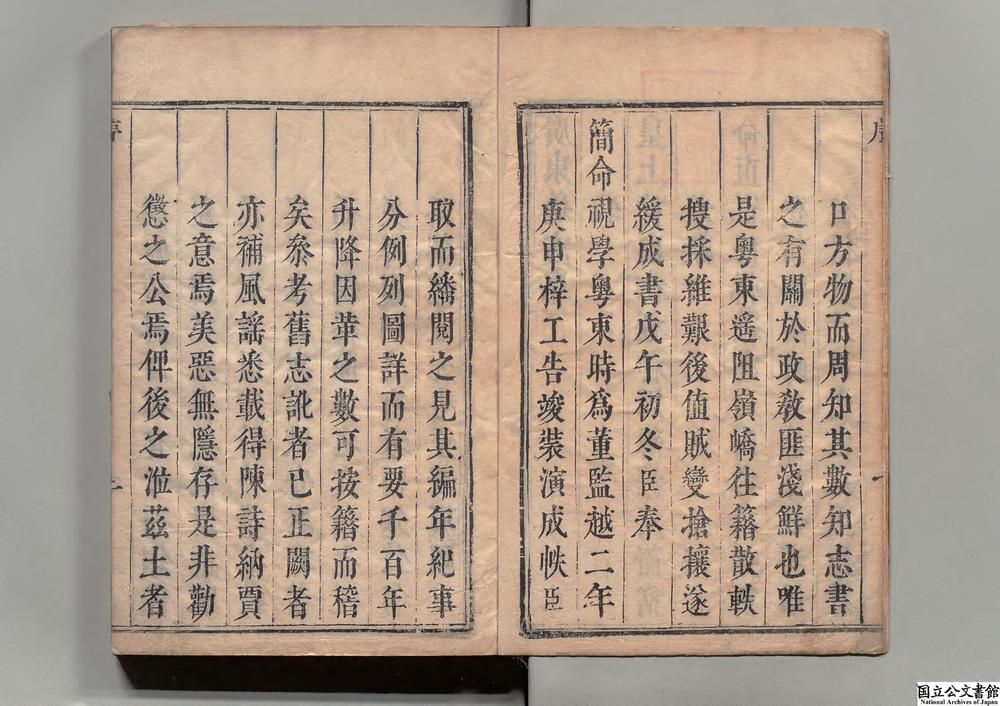 口方物而周知其數知志書
之有關於政敎匪淺鮮也唯
是粵東遥阻嶺嶠往籍散軼
搜採維艱後值賊變搶攘遂
緩成書戊午初冬臣奉
簡命視學粵東時爲董監越二年
庚申梓工告竣裝演成帙臣
取而繙閱之見其編年紀事
分例列圖詳而有要千百年
升降因革之數可按籍而稽
矣叅考舊志訛者已正闕者
亦補風謡悉載得陳詩納賈
之意焉美惡無隱存是非勸
懲之公焉俾後之涖茲土者
序
一
国立公文書館
National Archives of Japan